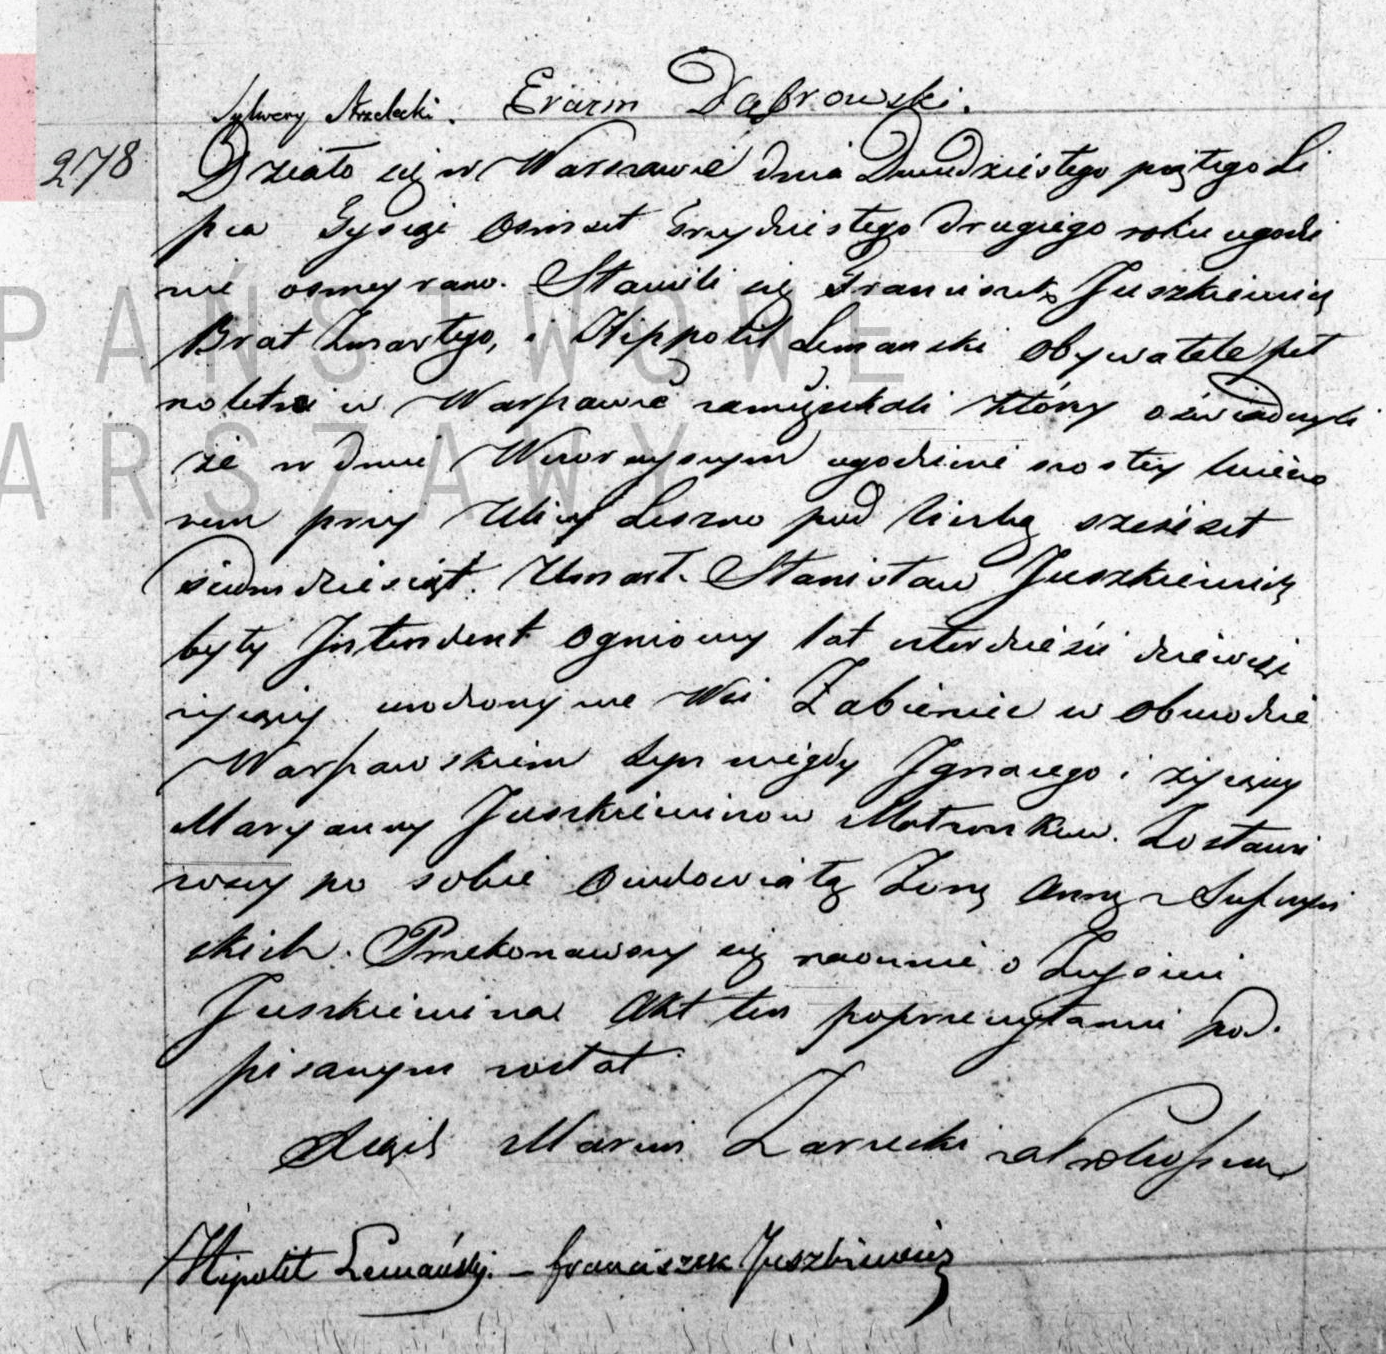 Sylwery Strzelecki. Erazm Dąbrowski.
278
Działo się w Warszawie dnia Dwudziestego piątego Li
pca Tysiąc Osmset Trzydziestego drugiego roku ogodzi
nie osmey rano. Stawili się Franciszek Juszkiewicz
Brat Zmarłego, i Hippolit Lemanski Obywatele peł
noletni w Warszawie zamięszkali którzy oświadczyli
że w dniu Wczorayszym ogodzinie szostey wieczo
rem przy Ulicy Leszno pod liczbą sześćset
siedmdziesiąt. Umarł Stanisław Juszkiewicz
były Intendent Ogniowy lat czterdzieści dziewięć
żyjący urodzony we Wsi Żabieniec w obwodzie
Warszawskim Syn niegdy Ignacego i żyjący
Maryanny Juszkiewiczow Małżonkow. Zostawi
wszy po sobie Owdowiałą Żonę Annę z
skich. Przekonawszy się naocznie o Zejściu
Juszkiewicza Akt ten poprzeczytaniu pod.
pisanym został
Xiądz Marcin Zarzecki
Hipolit Lemański. – franciszek Juszkiewicz
PAŃSTWOWE
ARSZAWY